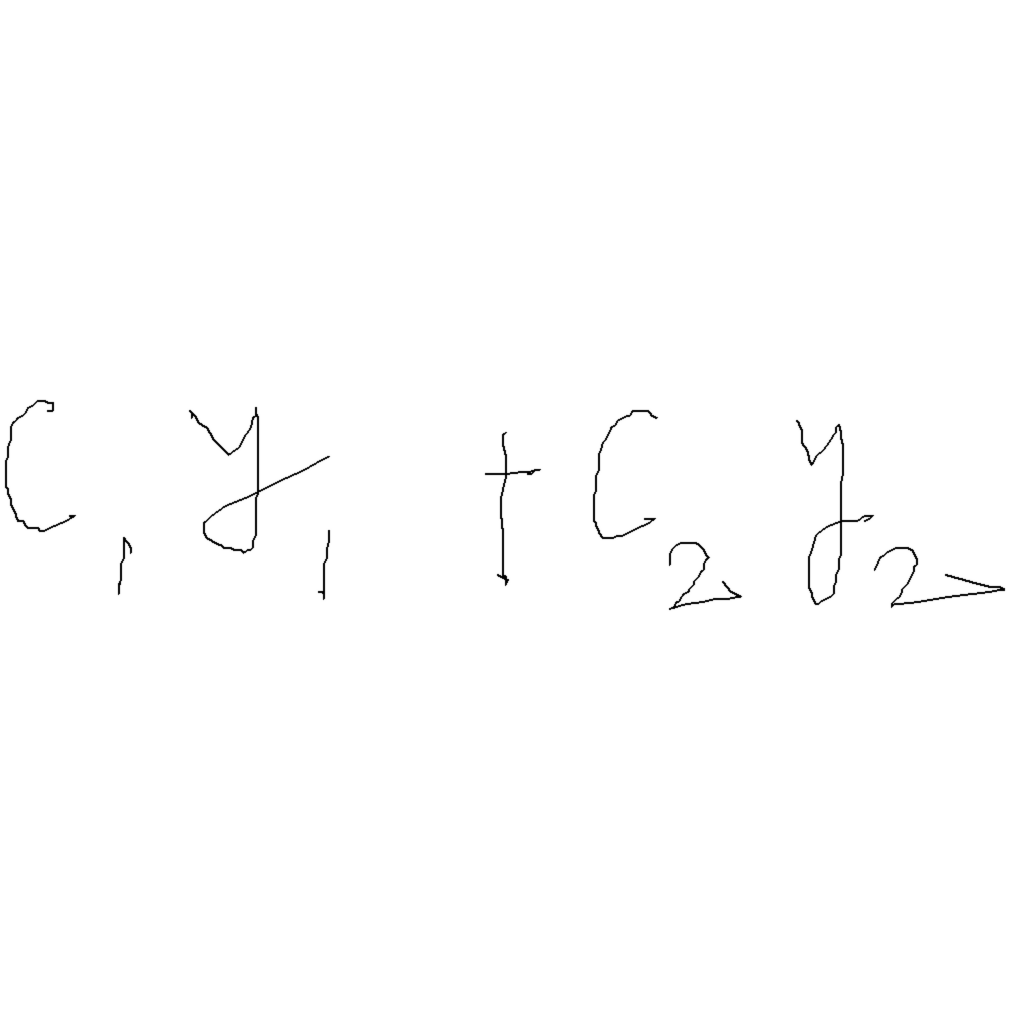 C₁y₁ + C₂y₂